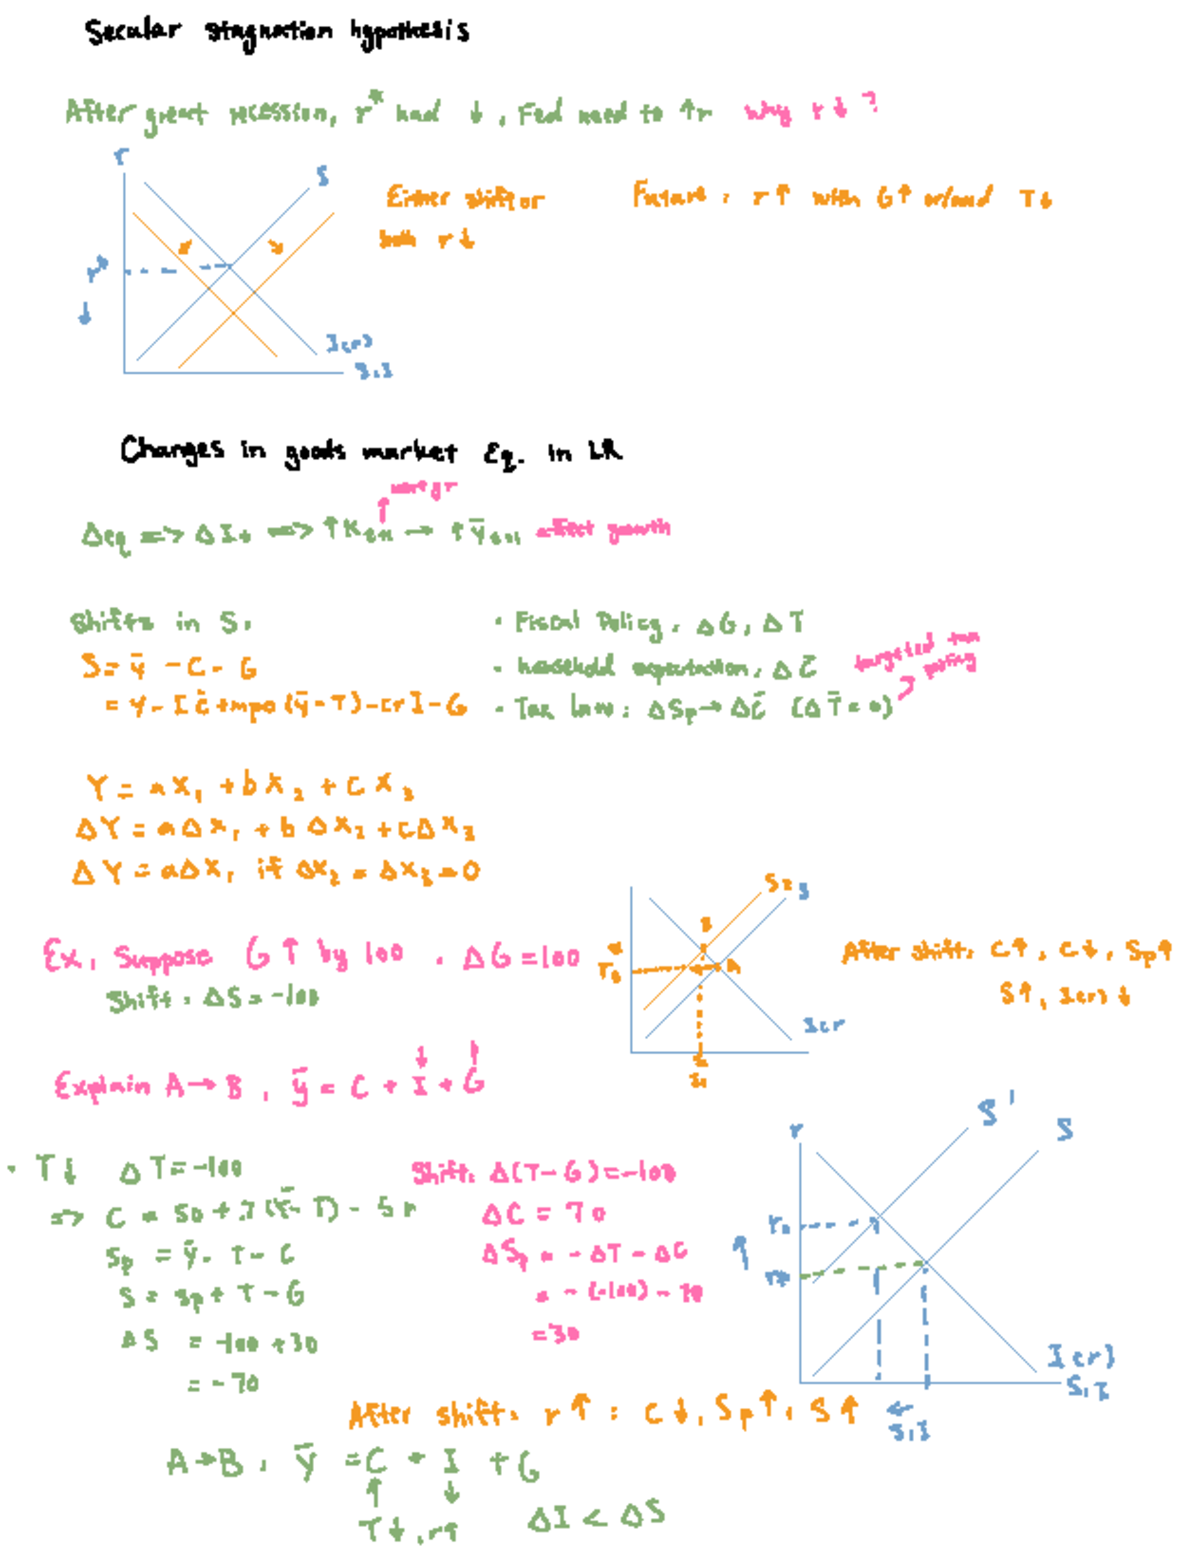 Secular stagnation hypothesis
After great recession, r* had ↓, Fed need to ↑r why r↓?
r
S
Either shift or
both r↓
Future: r↑ with G↑ or/and T↓
r*
↓
I(r)
S,I
Changes in goods market Eq. in LR
Δeq => ΔIt => ↑Kt+1 → ↑Ȳt+1 affect growth
Shifts in S:
S = Ȳ - C - G
= Y - [C̄ + mpc(Ȳ-T) - cr] - G
· Fiscal Policy: ΔG, ΔT
· household expectation: ΔC̄
· Tax law: ΔSp → ΔC̄ (ΔT̄ = 0)
targeted tax
policy
Y = aX₁ + bX₂ + cX₃
ΔY = aΔX₁ + bΔX₂ + cΔX₃
ΔY = aΔX₁ if ΔX₂ = ΔX₃ = 0
Ex. Suppose G↑ by 100. ΔG = 100
Shift: ΔS = -100
S₂ S
B
A
I(r
I₁
After shift: r↑, C↓, Sp↑
S↑, I(r)↓
Explain A→B, ȳ = C + I↓ + G↑
· T↓ ΔT = -100
=> C = 50 + .7(Ȳ-T) - 5r
Sp = ȳ - T - C
S = Sp + T - G
ΔS = -100 + 30
= -70
Shift: Δ(T-G) = -100
ΔC = 70
ΔSp = -ΔT - ΔC
= -(-100) - 70
= 30
r
S'
S
I(r)
S,I
←
S,I
After shift: r↑: C↓, Sp↑, S↑
A→B, Ȳ = C + I + G
↑ ↓
T↓, r↑ ΔI < ΔS